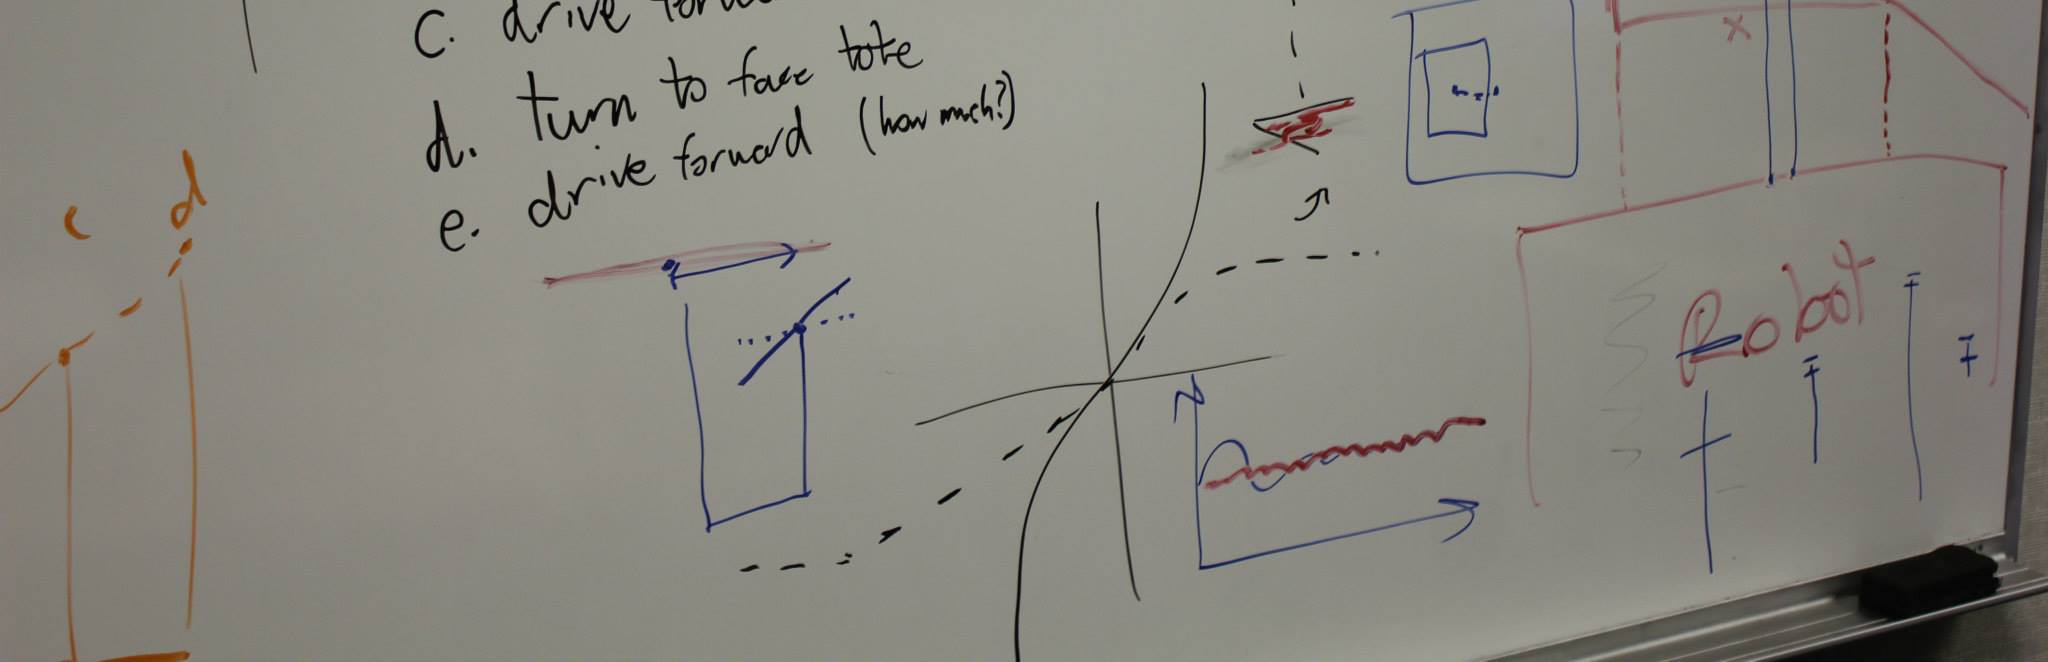 c. drive forward
d. turn to face tote
e. drive forward (how much?)
c d
x
Robot